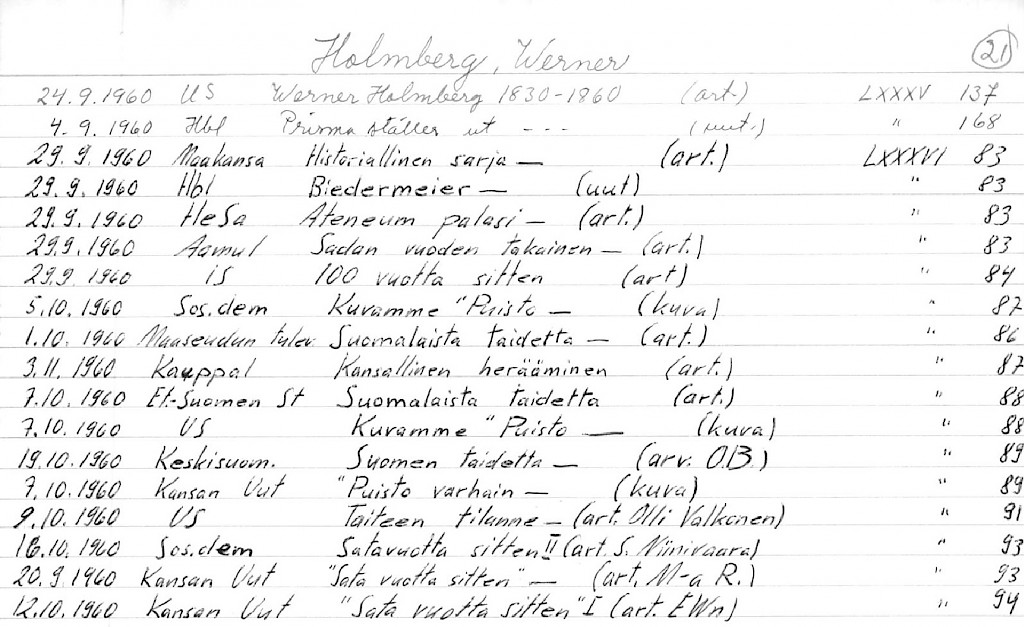 Holmberg, Werner 21
24.9.1960 US Werner Holmberg 1830-1860 (art.) LXXXV 137
4.9.1960 Hbl Prisma ställer ut --- (uut.) " 168
29.9.1960 Maakansa Historiallinen sarja — (art.) LXXXVI 83
29.9.1960 Hbl Biedermeier — (uut) " 83
29.9.1960 HeSa Ateneum palasi — (art.) " 83
29.9.1960 Aamul Sadan vuoden takainen — (art.) " 83
29.9.1960 iS 100 vuotta sitten (art) " 84
5.10.1960 Sos.dem Kuvamme "Puisto — (kuva) " 87
1.10.1960 Maaseudun tulev. Suomalaista taidetta — (art.) " 86
3.11.1960 Kauppal Kansallinen herääminen (art.) " 87
7.10.1960 Et.-Suomen St Suomalaista taidetta (art.) " 88
7.10.1960 US Kuvamme "Puisto — (kuva) " 88
19.10.1960 Keskisuom. Suomen taidetta — (arv. O.B.) " 89
7.10.1960 Kansan Uut "Puisto varhain — (kuva) " 89
9.10.1960 US Taiteen tilanne — (art. Olli Valkonen) " 91
16.10.1960 Sos.dem Satavuotta sitten II (art. S. Niinivaara) " 93
20.9.1960 Kansan Uut "Sata vuotta sitten" — (art. M-a R.) " 93
12.10.1960 Kansan Uut "Sata vuotta sitten" I (art. EWn) " 94